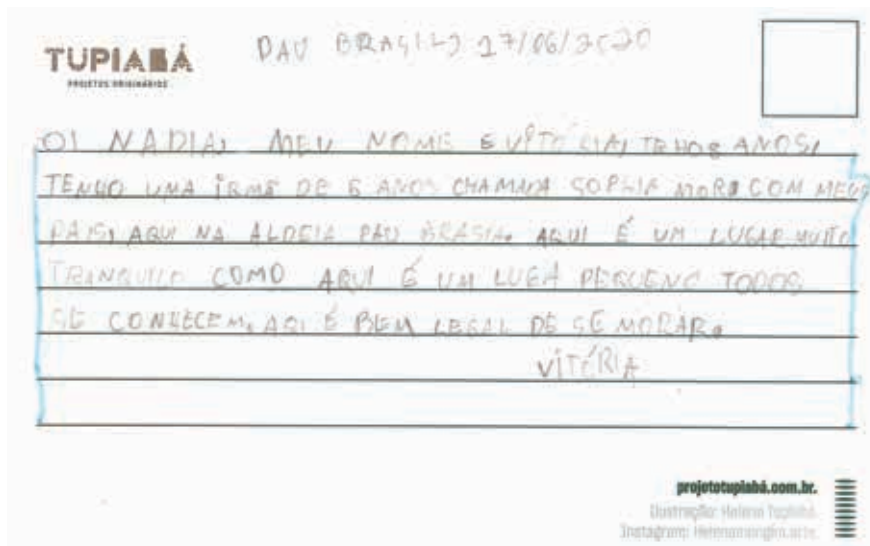 TUPIABÁ
PROJETOS ORIGINÁRIOS
PAU BRASIL, 17/06/2020
OI NADIA, MEU NOME É VITÓRIA, TENHO 8 ANOS,
TENHO UMA IRMÃ DE 6 ANOS CHAMADA SOPHIA MORO COM MEUS
PAIS, AQUI NA ALDEIA PAU BRASIL. AQUI É UM LUGAR MUITO
TRANQUILO COMO AQUI É UM LUGA PEQUENO TODOS
SE CONHECEM. AQI É BEM LEGAL DE SE MORAR.
VITÓRIA
projetotupiabá.com.br.
Ilustração: Helena Tupiabá
Instagram: